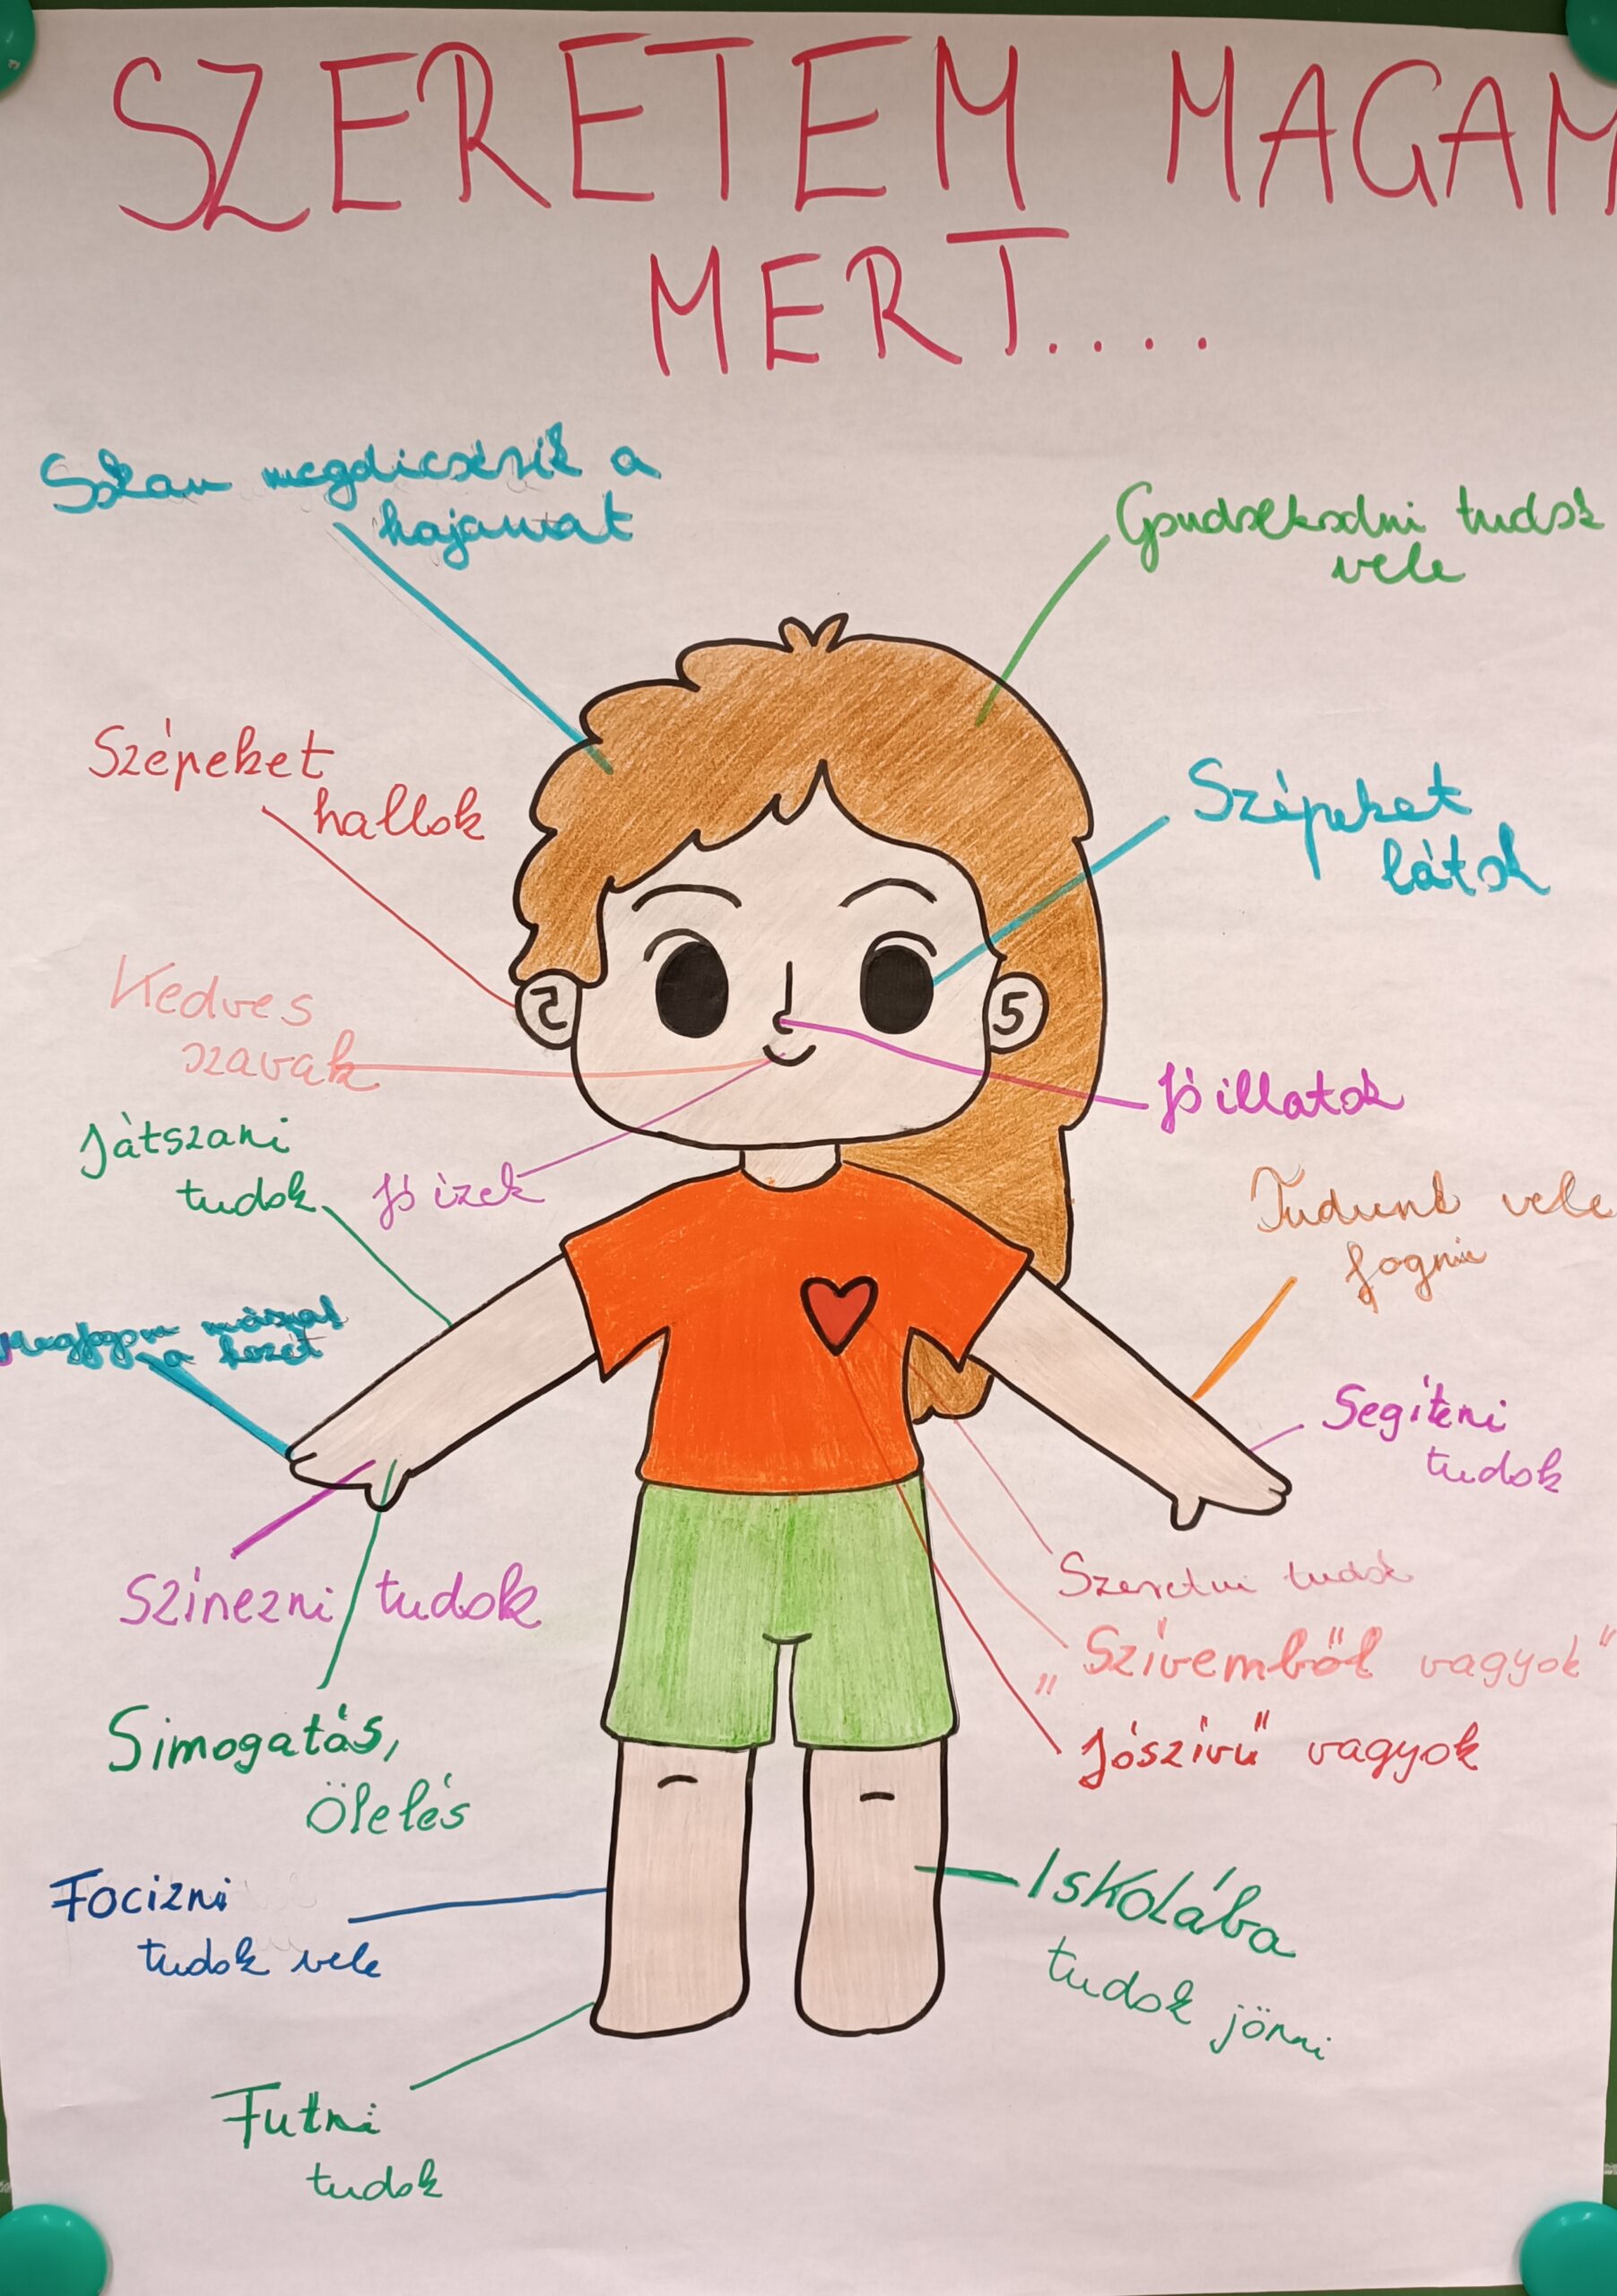 SZERETEM MAGAM
MERT....
Sokan megdicsérik a
hajamat
Gondolkodni tudok
vele
Szépeket
hallok
Szépeket
látok
Kedves
szavak
Jó illatok
Játszani
tudok
Jó izek
Tudunk vele
fogni
Megfogom mással
a kezét
Segíteni
tudok
Szinezni tudok
Szeretni tudok
„Szívemből vagyok"
Jószívű vagyok
Simogatás,
Ölelés
Focizni
tudok vele
Iskolába
tudok jönni
Futni
tudok